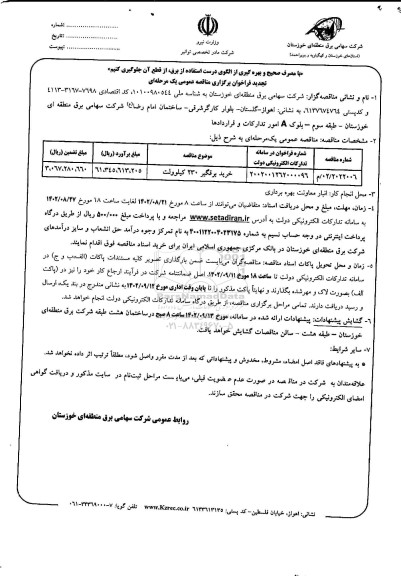 شماره :
تاریخ :
پیوست
وزارت نیرو
شرکت مادر تخصصی توانیر
شرکت سهامی برق منطقه‌ای خوزستان
(استان‌های خوزستان و کهگیلویه و بویراحمد)
«با مصرف صحیح و بهره گیری از الگوی درست استفاده از برق، از قطع آن جلوگیری کنیم»
تجدید فراخوان برگزاری مناقصه عمومی یک مرحله‌ای
۱- نام و نشانی مناقصه‌گزار: شرکت سهامی برق منطقه‌ای خوزستان به شناسه ملی ۱۰۱۰۰۹۸۰۵۴۴، کد اقتصادی ۷۶۹۸-۳۱۶۷-۴۱۱۳
و کدپستی ۶۱۳۷۶۷۴۷۶۴، به نشانی: اهواز-گلستان- بلوار کارگرشرقی- ساختمان امام رضا(ع) شرکت سهامی برق منطقه ای
خوزستان - طبقه سوم - بلوک A امور تدارکات و قراردادها
۲- مشخصات مناقصه: مناقصه عمومی یک‌مرحله‌ای به شرح ذیل:
شماره مناقصه | شماره فراخوان در سامانه تدارکات الکترونیکی دولت | موضوع مناقصه | مبلغ برآورد (ریال) | مبلغ تضمین (ریال)
۰۲/۲۰۲۲۰۰۶/م | ۲۰۰۲۰۰۱۲۶۲۰۰۰۰۹۶ | خرید برقگیر ۲۳۰ کیلوولت | ۶۱.۳۴۵.۶۱۳.۲۰۵ | ۳.۰۶۷.۲۸۰.۶۶۰
۳- محل انجام کار: انبار معاونت بهره برداری
۴- زمان، مهلت، مبلغ و محل دریافت اسناد: متقاضیان می‌توانند از ساعت ۸ مورخ ۱۴۰۲/۰۸/۲۱ لغایت ساعت ۱۸ مورخ ۱۴۰۲/۰۸/۲۷
به سامانه تدارکات الکترونیکی دولت به آدرس www.setadiran.ir مراجعه و با پرداخت مبلغ ۵۰۰/۰۰۰ ریال از طریق درگاه
پرداخت اینترنتی در وجه حساب نسیم به شماره ۴۰۰۱۱۴۲۰۰۴۰۲۳۱۲۵ به نام تمرکز وجوه درآمد حق انشعاب و سایر درآمدهای
شرکت برق منطقه‌ای خوزستان در بانک مرکزی جمهوری اسلامی ایران برای خرید اسناد مناقصه فوق اقدام نمایند.
۵- زمان و محل تحویل پاکات اسناد مناقصه: مناقصه‌گران می‌بایست ضمن بارگذاری تصویر کلیه مستندات پاکات (الف،ب و ج) در
سامانه تدارکات الکترونیکی دولت تا ساعت ۱۸ مورخ ۱۴۰۲/۰۹/۱۱ اصل ضمانتنامه شرکت در فرآیند ارجاع کار خود را نیز در (پاکت
الف) بصورت لاک و مهرشده بگذارند و نهایتاً پاکت مذکور را تا پایان وقت اداری مورخ ۱۴۰۲/۰۹/۱۲ به نشانی مندرج در بند یک، ارسال
و رسید دریافت دارند. تمامی مراحل برگزاری مناقصه، از طریق درگاه سامانه تدارکات الکترونیکی دولت انجام خواهد شد.
۶- گشایش پیشنهادات: پیشنهادات ارائه شده در سامانه، مورخ ۱۴۰۲/۰۹/۱۳ ساعت ۸ صبح درساختمان هشت طبقه شرکت برق منطقه‌ای
خوزستان - طبقه هشت - سالن مناقصات گشایش خواهد یافت.
۷- سایر شرایط:
● به پیشنهادهای فاقد امضاء، مشروط، مخدوش و پیشنهاداتی که بعد از مدت مقرر واصل شود، مطلقاً ترتیب اثر داده نخواهد شد.
علاقه‌مندان به شرکت در مناقصه در صورت عدم عضویت قبلی، می‌بایست مراحل ثبت‌نام در سایت مذکور و دریافت گواهی
امضای الکترونیکی را جهت شرکت در مناقصه محقق سازند.
روابط عمومی شرکت سهامی برق منطقه‌ای خوزستان
نشانی: اهواز، خیابان فلسطین- کد پستی: ۶۱۳۳۶۱۳۱۳۵ www.Kzrec.co.ir تلفن گویا: ۷-۳۳۳۶۹۰۰۰-۰۶۱